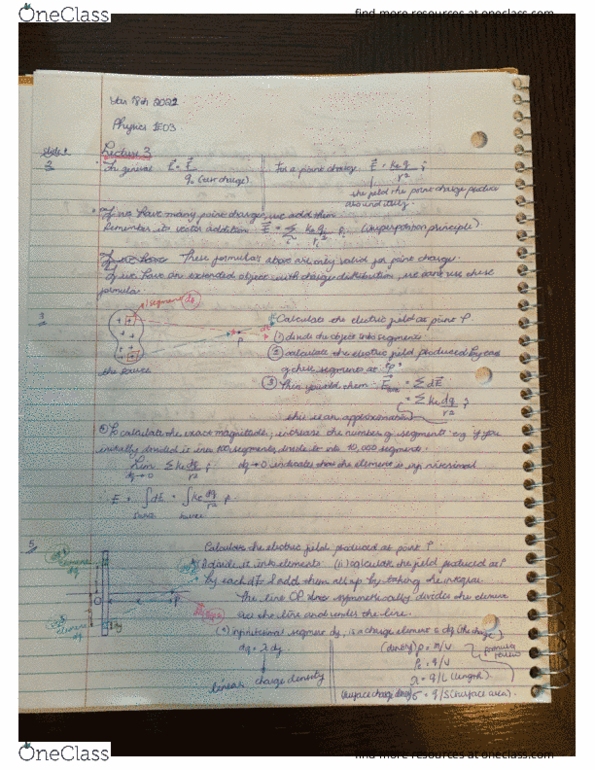 OneClass
find more resources at oneclass.com
18th 2022
Physics 1E03
Lecture 3
In general E = F
q₀ (test charge)
For a point charge E = ke q r̂
r²
the field the point charge produces
If we have many point charges, we add them
Remember its vector addition E = Σ ke qi r̂i (superposition principle).
These formulas above are only valid for point charge.
If we have an extended object with charge distribution, we can't use these
formula.
segment dq
3
Calculate the electric field at point P.
P
① divide the object into segments
② calculate the electric field produced by each
of these segments at "P"
the source
③ Then you add them
= Σ dE
= Σ ke dq r̂
r²
this is an approximation
To calculate the exact magnitude, increase the number of segments e.g if you
initially divided it into 100 segments, divide to into 10,000 segments.
lim Σ ke dq r̂
dq→0 r²
dq → 0 indicates that the element is infinitesimal
∴ E = ∫ dE = ∫ ke dq r̂
r²
5
Calculate the electric field produced at point P.
element
dq
(i) divide it into elements (ii) calculate the field produced at P
by each dE & add them all up by taking the integral
O
P
The line OP symmetrically divides the
the line and under the line.
element
dq
dy
infinitesimal segment dy, is a charge element is dq (the charge)
dq = λ dy
(density) ρ = m/V
ρ = q/V
linear charge density
λ = q/L (length)
(surface charge density) σ = q/S (surface area).
OneClass
find more resources at oneclass.com